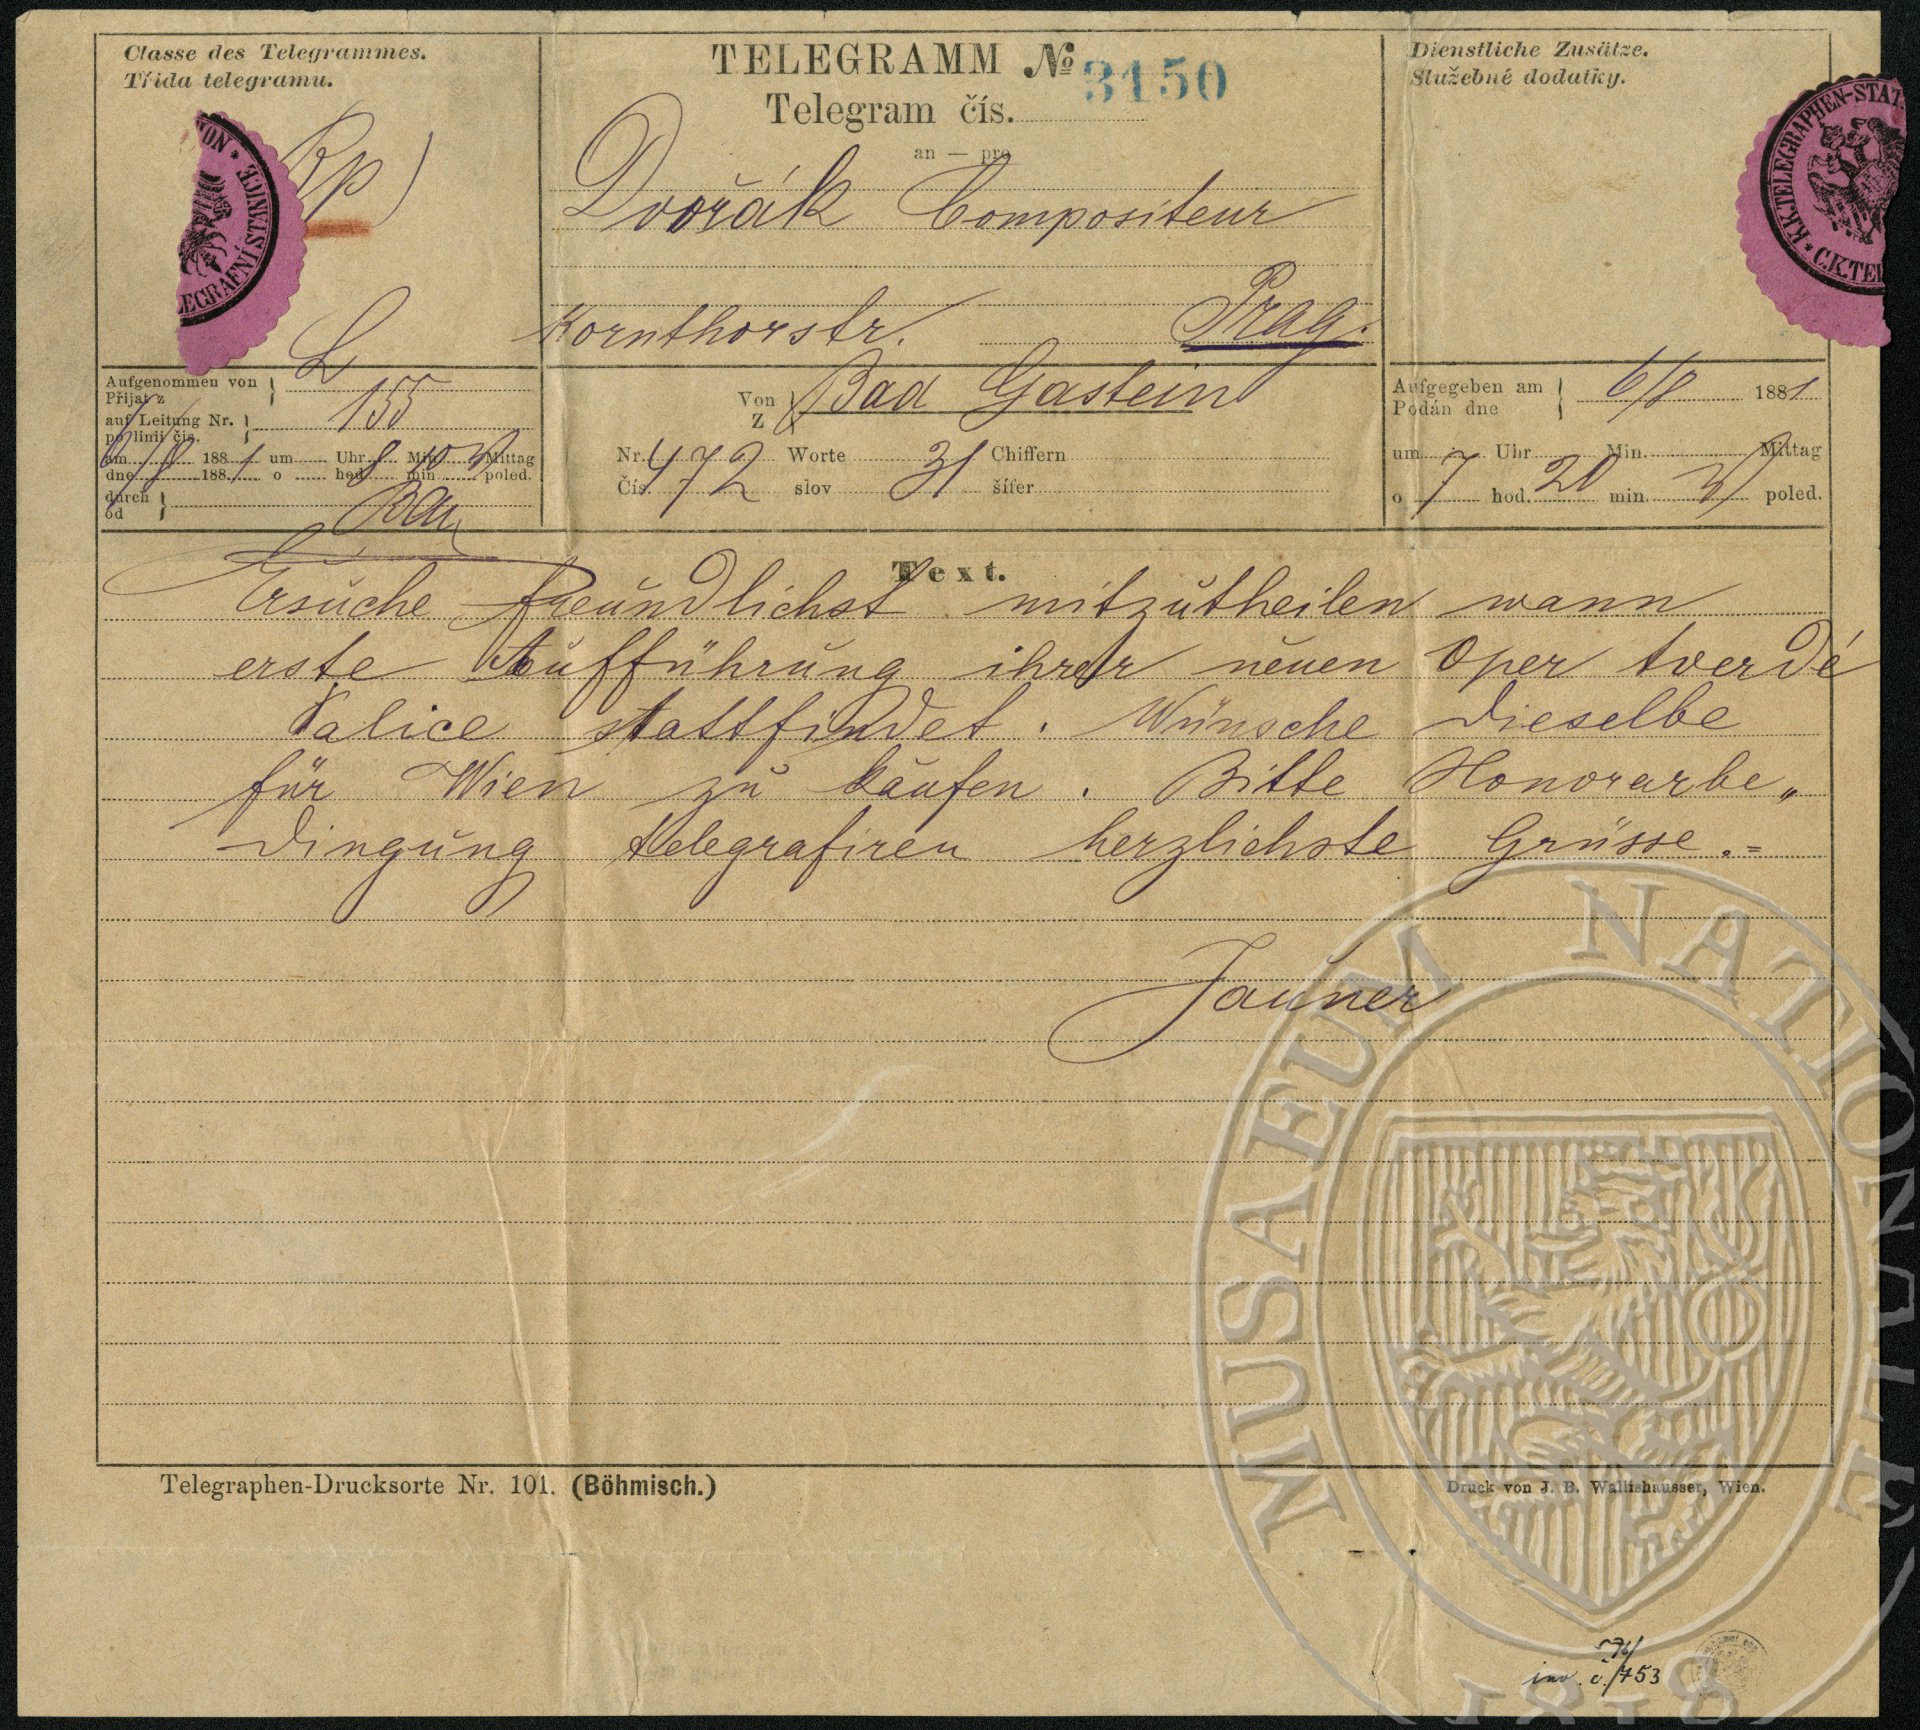 Classe des Telegrammes.
Třída telegramu.
Rp)
TELEGRAMM No 3150
Telegram čís.
an — pro
Dvořák Compositeur
Kornthorstr. Prag.
Dienstliche Zusätze.
Služebné dodatky.
K.K.TELEGRAPHEN-STAT
C.K.TEL
LEGRAFNÍ STANICE
Aufgenommen von } L
Přijat z
auf Leitung Nr. } 155
po linii čís.
am 6/8 1881 um 8 Uhr 10 Min. Mittag
dne 188 o hod. min. poled.
durch }
od
Von } Bad Gastein
Z
Nr. 472 Worte 31 Chiffern
Čís. slov šífer
Aufgegeben am } 6/8 1881
Podán dne
um 7 Uhr 20 Min. Mittag
o hod. min. poled.
Text.
Ersuche freundlichst mitzutheilen wann
erste Aufführung ihrer neuen Oper tverdé
Palice stattfindet. Wünsche dieselbe
für Wien zu kaufen. Bitte Honorarbe„
dingung telegrafiren herzlichste Grüsse.=
Jauner
Telegraphen-Drucksorte Nr. 101. (Böhmisch.)
Druck von J. B. Wallishausser, Wien.
inv. č./753
MUSAEUM NATIONALE
1818